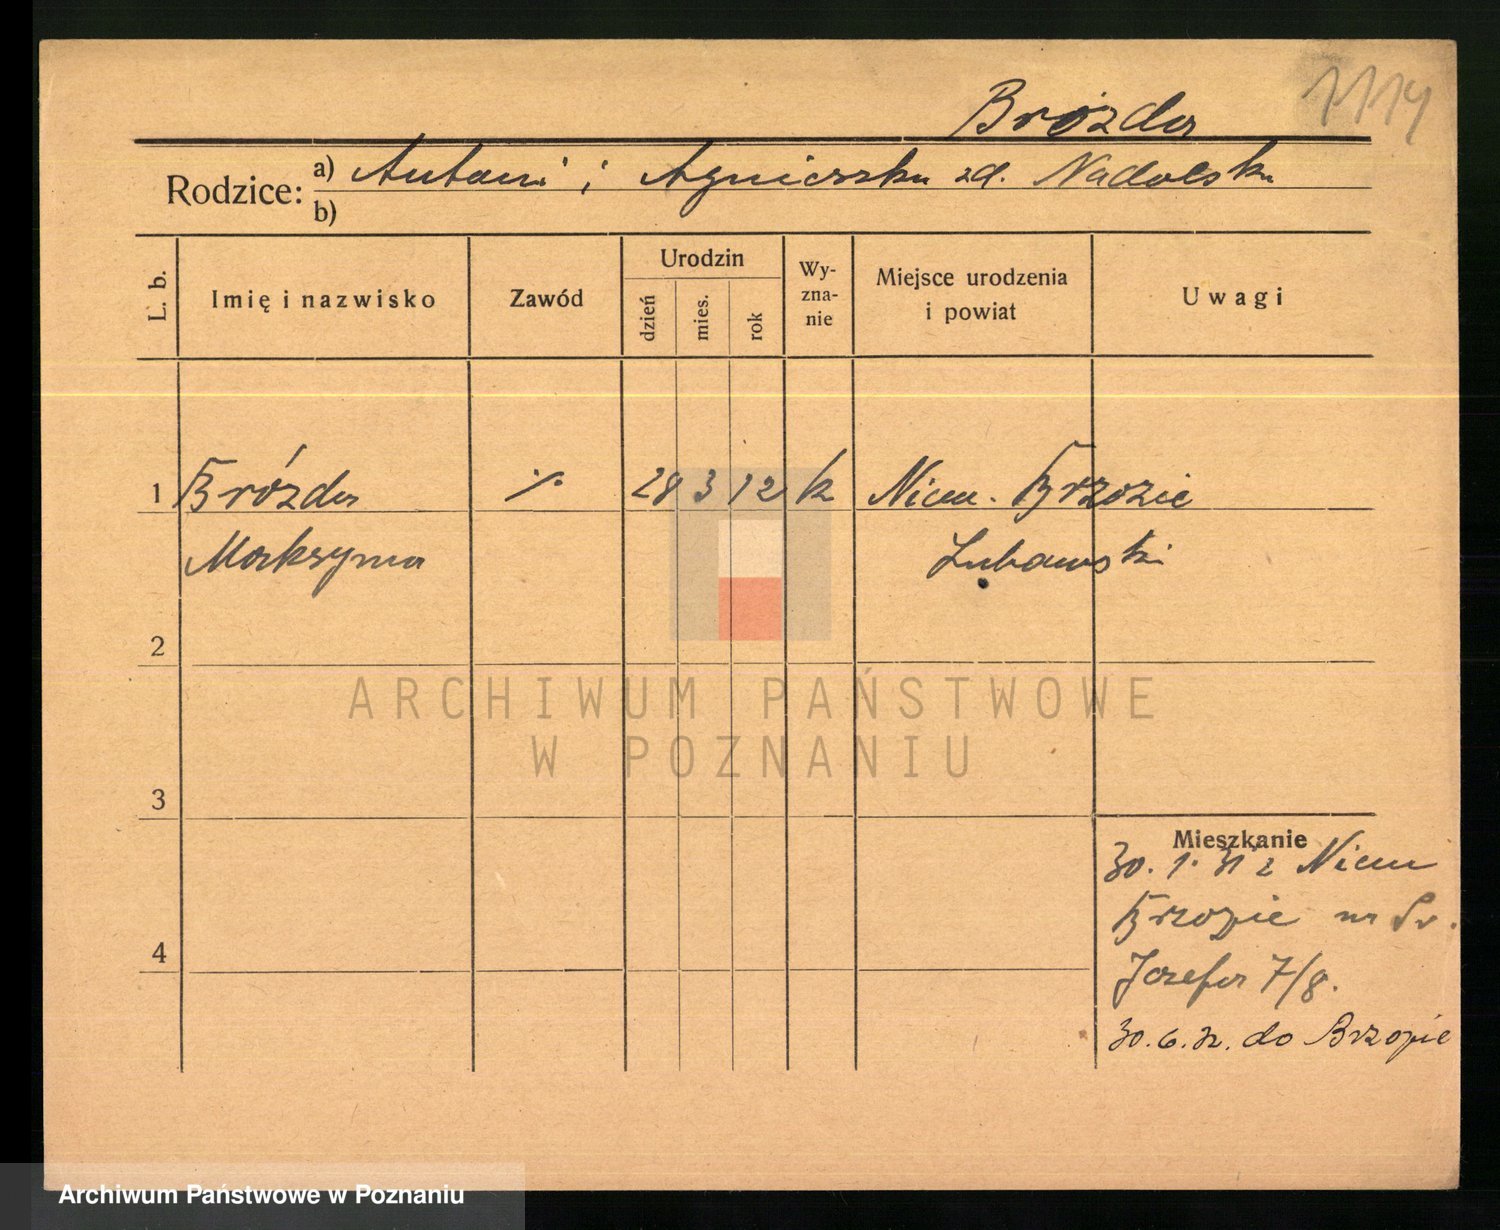 1114
Brózda
Rodzice: a) Antoni i Agnieszka zd. Nadolska
b)
L. b. Imię i nazwisko Zawód Urodzin dzień mies. rok Wy-zna-nie Miejsce urodzenia i powiat Uwagi
1 Brózda ·/. 28 3 12 k Niem. Brzozie
Maksyma Lubawski
2
3
4
Mieszkanie
30. 1. 31 z Niem
Brzozie na Św.
Józefa 7/8.
30. 6. 32. do Brzozie
ARCHIWUM PAŃSTWOWE
W POZNANIU
Archiwum Państwowe w Poznaniu